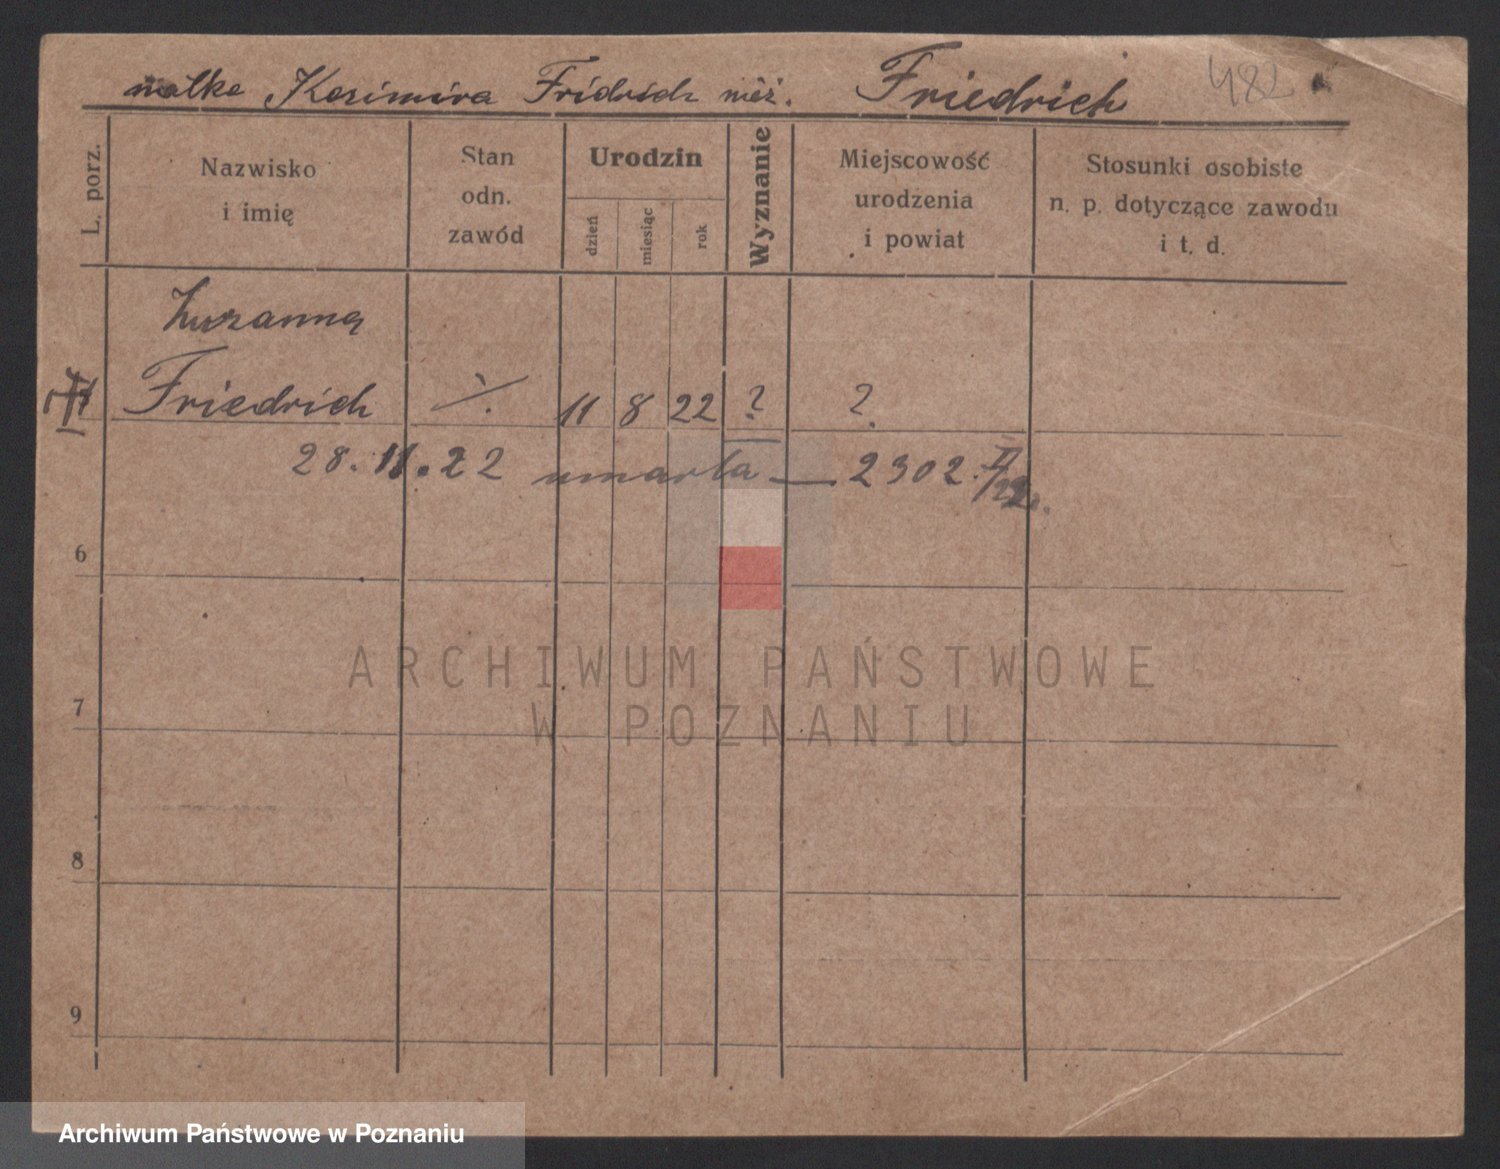 matka Kazimira Fridrich niez. Friedrich 482
L. porz.
Nazwisko
i imię
Stan
odn.
zawód
Urodzin
dzień
miesiąc
rok
Wyznanie
Miejscowość
urodzenia
i powiat
Stosunki osobiste
n. p. dotyczące zawodu
i t. d.
Zuzanna
Friedrich ./. 11 8 22 ? ?
28. 11. 22 umarła — 2302.
6
7
8
9
ARCHIWUM PAŃSTWOWE
W POZNANIU
Archiwum Państwowe w Poznaniu